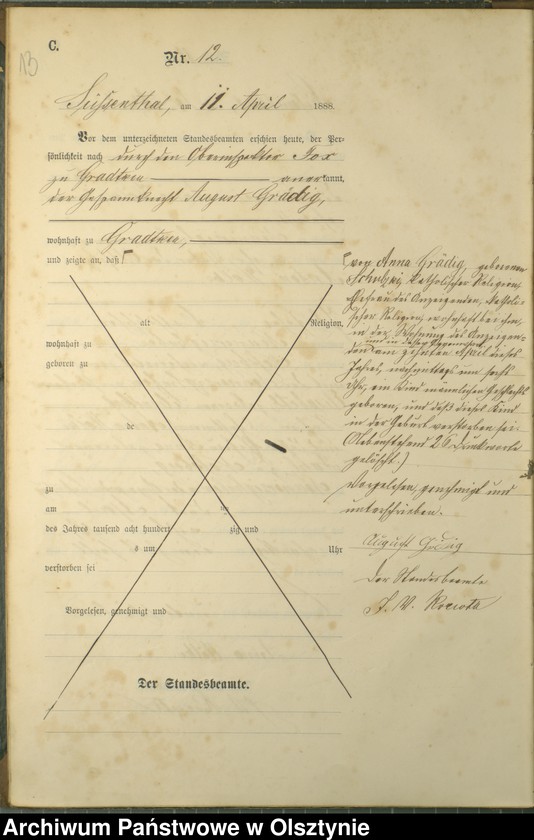 C.
13
Nr. 12.
Süssenthal, am 11. April 1888.
Vor dem unterzeichneten Standesbeamten erschien heute, der Per-
sönlichkeit nach durch den Oberinspektor Fox
zu Gradtken anerkannt,
der Gespannknecht August Grädig,
wohnhaft zu Gradtken,
und zeigte an, daß
von Anna Grädig, geborenen
katholischer Religion,
Ehefrau des Anzeigenden, katholi-
scher Religion, wohnhaft bei ihm,
in der Wohnung des Anzeigen-
und in dessen Gegenwart
den am zehnten April dieses
Jahres, nachmittags um sechs
Uhr, ein Kind männlichen Geschlechts
geboren, und daß dieses Kind
in der Geburt verstorben sei.
(Nebenstehend 26 Druckworte
gelöscht.)
Vorgelesen, genehmigt und
unterschrieben.
August Grädig
Der Standesbeamte
alt Religion,
wohnhaft zu
geboren zu
de
zu
am
des Jahres tausend acht hundert zig und
s um Uhr
verstorben sei
Vorgelesen, genehmigt und
Der Standesbeamte.
Archiwum Państwowe w Olsztynie